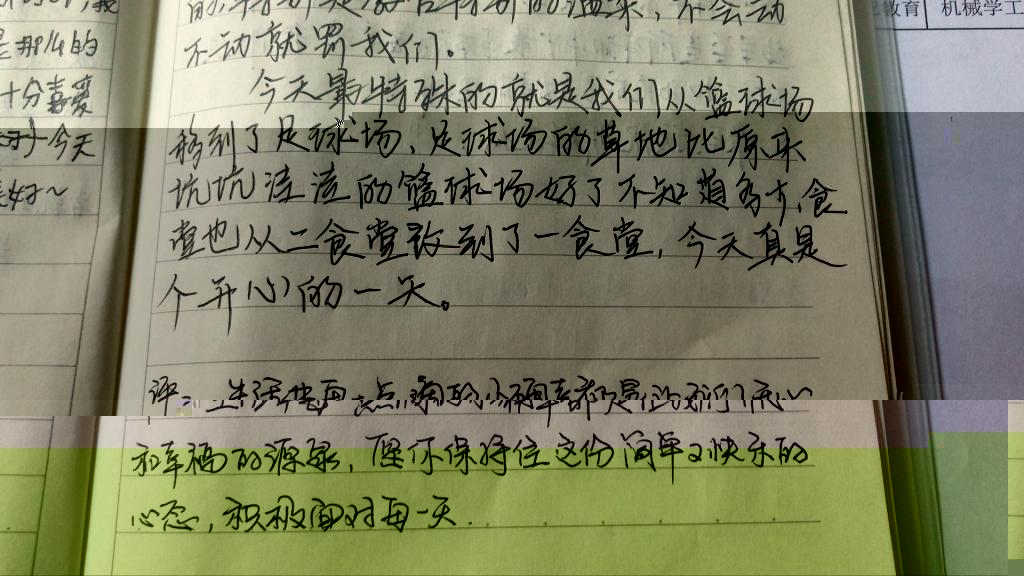 不动就罚我们。
今天最特殊的就是我们从篮球场
移到了足球场、足球场的草地比原来
坑坑洼洼的篮球场好了不知道多少,食
堂也从二食堂改到了一食堂,今天真是
个开心的一天。
评:生活中每一点
和幸福的源泉,愿你保持住这份简单又快乐的
心态,积极面对每一天.
是那么的
十分喜爱
今天
教育
机械学工